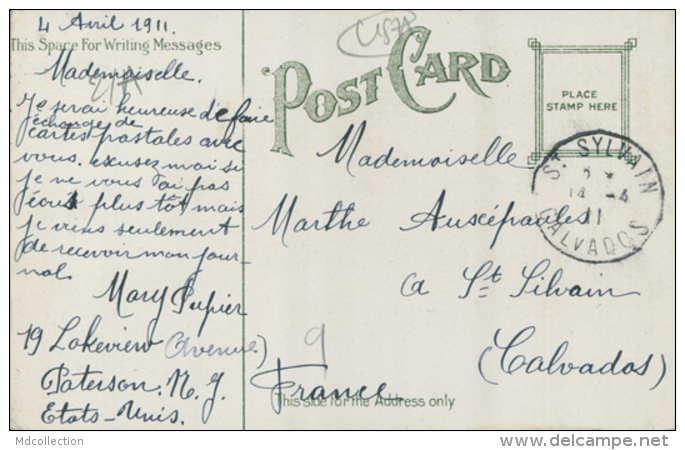 4 Avril 1911.
This Space For Writing Messages
Mademoiselle.
Je serai heureuse de faire
échange de
cartes postales avec
vous. excusez moi si
je ne vous ai pas
écrit plus tôt mais
je viens seulement
de recevoir mon jour
nal.
Mary Pupier
19 Lakeview (Avenue)
Paterson. N. J.
Etats-Unis.
POST CARD
PLACE
STAMP HERE
ST SYLVAIN
14 -4
11
CALVADOS
Mademoiselle
Marthe
a St. Silvain
(Calvados)
France
9
This side for the Address only
Mdcollection